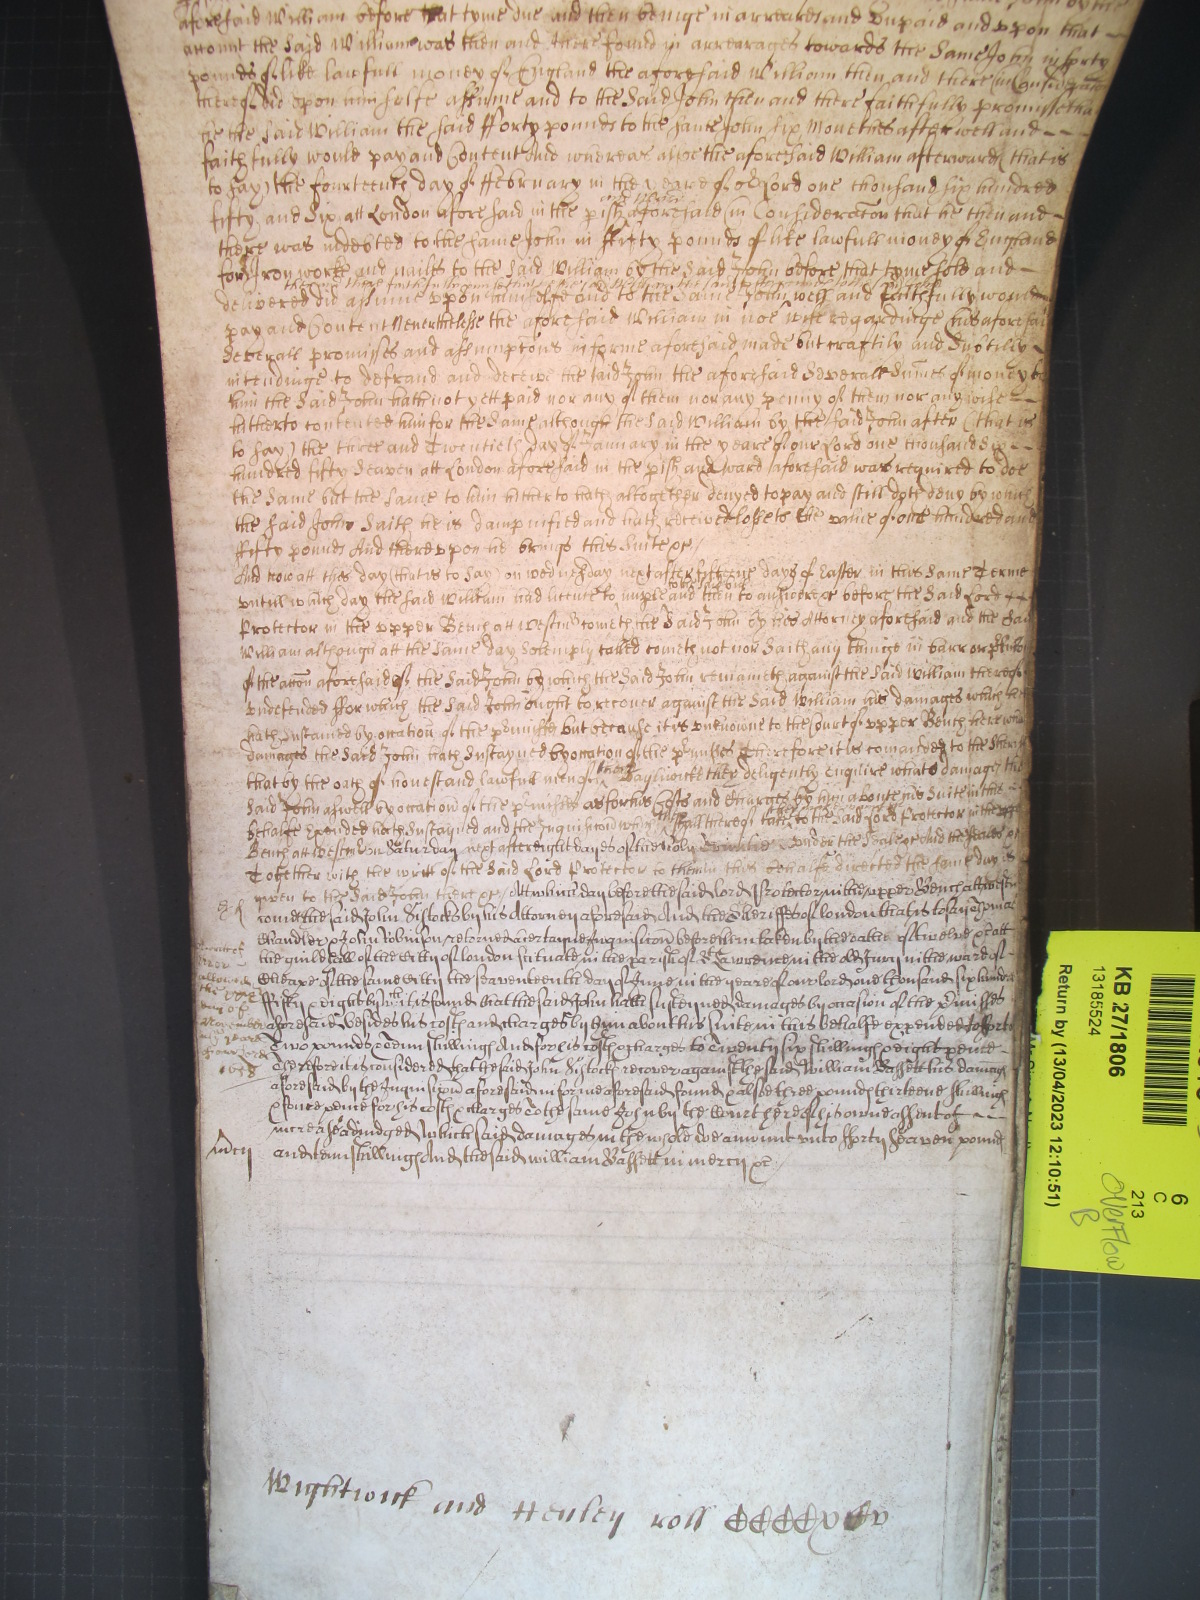 aforesaid William before that tyme due and then beinge in arreares and Unpaid and vppon that
accompt the said William was then and there found in arrearages towards the Same John in forty
pounds of like lawfull money of England the aforesaid William then and there in Consideracon
thereof did vpon himselfe assume and to the Said John then and there faithfully promise that
he the Said William the said fforty pounds to the same John six Monethes after well and
faithfully would pay and Content And whereas alsoe the aforesaid William afterward (that is
to say) the fourteenth day of ffebruary in the yeare of our Lord one thousand six hundred
and ward
fifty and Six att London aforesaid in the pish aforesaid in Consideracon that he then and
there was indebted to the same John in ffifty pounds of like lawfull money of England
for Iron worke and nailes to the Said William by the Said John before that tyme sold and
delivered did assume vppon himselfe and to the Same John well and faithfully would
pay and Content Neverthelesse the aforesaid William in noe wise regardinge his aforesaid
severall promisses and assumptions in forme aforesaid made but craftily and Subtilly
intendinge to defraud and deceive the said John the aforesaid Severall Sumes of money to
him the Said John hath not yett paid nor any of them nor any penny of them nor any wise
hitherto contented him for the Same although the Said William by the Said John after (that is
to say) the three and Twentieth day of January in the yeare of our Lord one thousand Six
hundred fifty Seaven att London aforesaid in the pish and ward aforesaid was required to doe
the Same but the Same to him hitherto hath altogether denyed to pay and still doth deny by which
the said John Saith he is dampnified and hath received losse to the value of one hundred and
fifty pounds And therevpon he brings this Suite &c
And now att this day (that is to say) on wednesday next after fifteene dayes of Easter in this Same Terme
vntill which day the said William had licence to imple and then to answere &c before the Said Lord
Protector in the vpper Bench att Westmr cometh the Said John by his Attorney aforesaid and the Said
William although att the Same day Solemply called cometh not nor Saith any thinge in barr or
of the accon aforesaid of the Said John by which the Said John remaineth against the Said William thereof
vndefended ffor which the Said John ought to recover against the Said William his damages which he
hath Sustained by occasion of the pmisses but because it is vnknowne to the Court of vpper Bench here what
damages the Said John hath Sustayned by occasion of the pmisses Therefore it is comanded to the Sheriffs
that by the oath of honest and lawfull men of their Baylywicke they deligently enquire what damages the
Said John aswell by occasion of the pmisses as for his Costs and Charges by him about his Suite in this
behalfe expended hath Sustayned and the Inquisicon which they shall thereof take to the Said Lord Protector in the vpper
Bench att Westmr on Saturday next after eight dayes of the holy Trinitie vnder the Seales of
Together with the writt of the Said Lord Protector to them in this behalfe directed the same day is
given to the Said John there &c Att which day before the said Lord Protector in the vpper Bench att Westmr
come the said John Sistocks by his Attorney aforesaid And the Sheriffes of london that is to say
Chandler & John Robinson returned a certayne Inquisicon before them taken by the oathe of twelve &c att
the guildhall of the Citty of london Scituate in the parish of St Lawrence in the old Jury in the ward of
Cheape of the same Citty the seaventeenth day of June in the yeare of our lord one thousand six hundred
ffifty & eight by wch it is found that the said John hath Susteyned damages by occasion of the pmisses
aforesaid besides his costs and charges by him about his suite in this behalfe expended to forty
Two pounds & Tenn shillings And for his costs & charges to Twenty six shillings & eight pence
Therefore it is considered that the said John Sistocks recover against the said William Bassett his damages
aforesaid by the Inquisicon aforesaid in forme aforesaid found & alsoe three pounds thirteene shillings
& foure pence for his costs & charges To the same John by the Court here of his owne assent of
increase adiudged which said damages in the whole doe amount vnto fforty Seaven pounds
and tenn shillings And the said William Bassett in mercy &c
mcy
Wightwick and Henley roll
KB 27/1806
13185524
Return by (13/04/2023 12:10:51)
6
C
213
Overflow
B